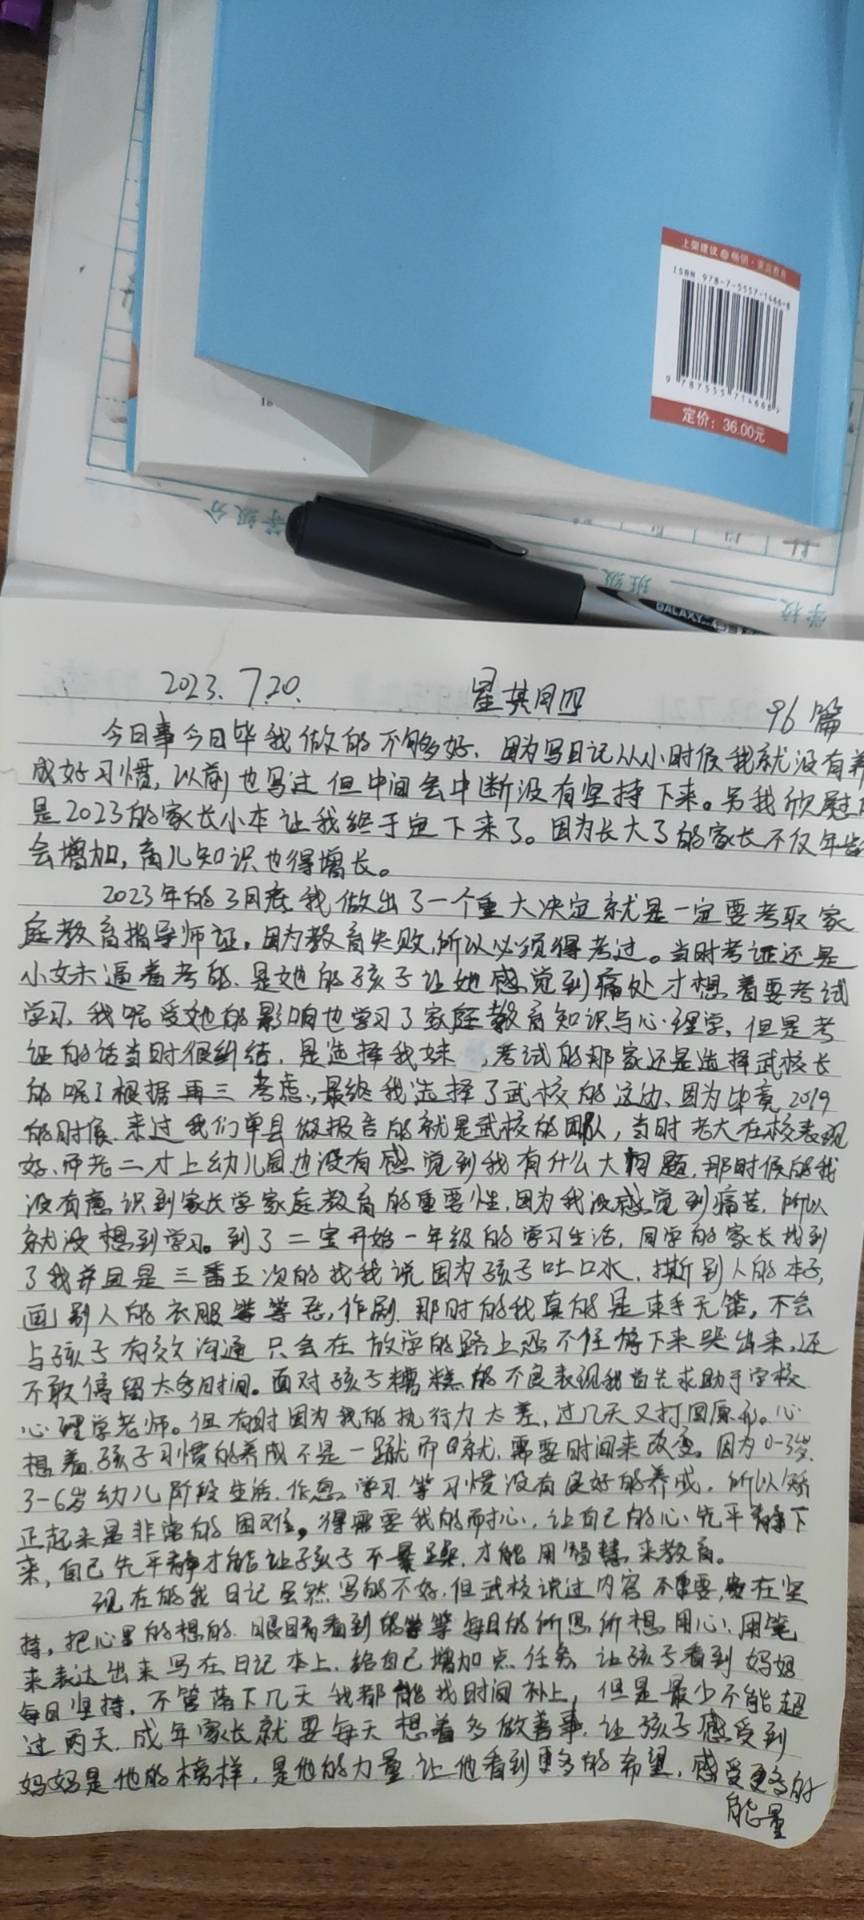 上架建议 畅销·家庭教育
ISBN 978-7-5557-1466-8
9 787555 714668
定价：36.00元
18
等级分
班级
学校
GALAXY
2023.7.20. 星期四 96篇
今日事今日毕我做的不够好、因为写日记从小时候我就没有养
成好习惯，以前也写过但中间会中断没有坚持下来。另我欣慰的
是2023的家长小本让我终于定下来了。因为长大了的家长不仅年龄
会增加，育儿知识也得增长。
2023年的3月底我做出了一个重大决定就是一定要考取家
庭教育指导师证，因为教育失败，所以必须得考过。当时考证还是
小妹逼着考的、是她的孩子让她感觉到痛处才想着要考试
学习、我呢受她的影响也学习了家庭教育知识与心理学，但是考
证的话当时很纠结、是选择我妹，考试的那家还是选择武校长
的呢？根据再三考虑，最终我选择了武校的这边、因为毕竟2019
的时候、来过我们单县做报告的就是武校的团队，当时老大在校表现
好、而老二才上幼儿园也没有感觉到我有什么大问题、那时候的我
没有意识到家长学家庭教育的重要性，因为我没感觉到痛苦、所以
就没想到学习。到了二宝开始一年级的学习生活，同学的家长找到
了我并且是三番五次的找我说因为孩子吐口水、撕别人的本子，
画别人的衣服等等恶作剧、那时的我真的是束手无策，不会
与孩子有效沟通只会在放学的路上忍不住停下来哭出来，还
不敢停留太多时间。面对孩子糟糕的不良表现我首先求助于学校
心理学老师。但有时因为我的执行力太差，过几天又打回原形。心
想着、孩子习惯的养成不是一蹴而就、需要时间来改变。因为0-3岁、
3-6岁幼儿阶段生活、作息、学习等习惯没有良好的养成，所以矫
正起来是非常的困难，得需要我的耐心，让自己的心先平静下
来，自己先平静才能让孩子不暴躁、才能用智慧来教育。
现在的我日记虽然写的不好、但武校说过内容不重要，贵在坚
持，把心里的想的、眼睛看到的等等每日的所思所想、用心、用笔
来表达出来写在日记本上、给自己增加点任务、让孩子看到妈妈
每日坚持，不管落下几天我都能找时间补上，但是最少不能超
过两天、成年家长就要每天想着多做善事、让孩子感受到
妈妈是他的榜样，是他的力量、让他看到更多的希望，感受更多的
能量